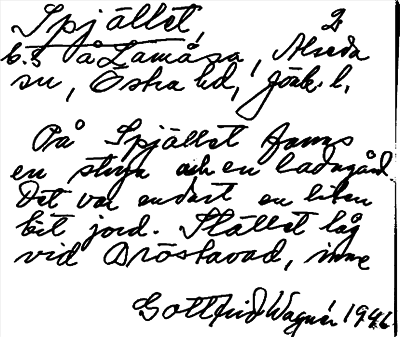 Spjället, 2
b.s på Lamåsa, Alseda
sn, Östra hd, Jönk. l.
På Spjället fanns
en stuga och en ladugård.
Det var endast en liten
bit jord. Stället låg
vid Dröstavad, inne
Gottfrid Wagnér 1946.